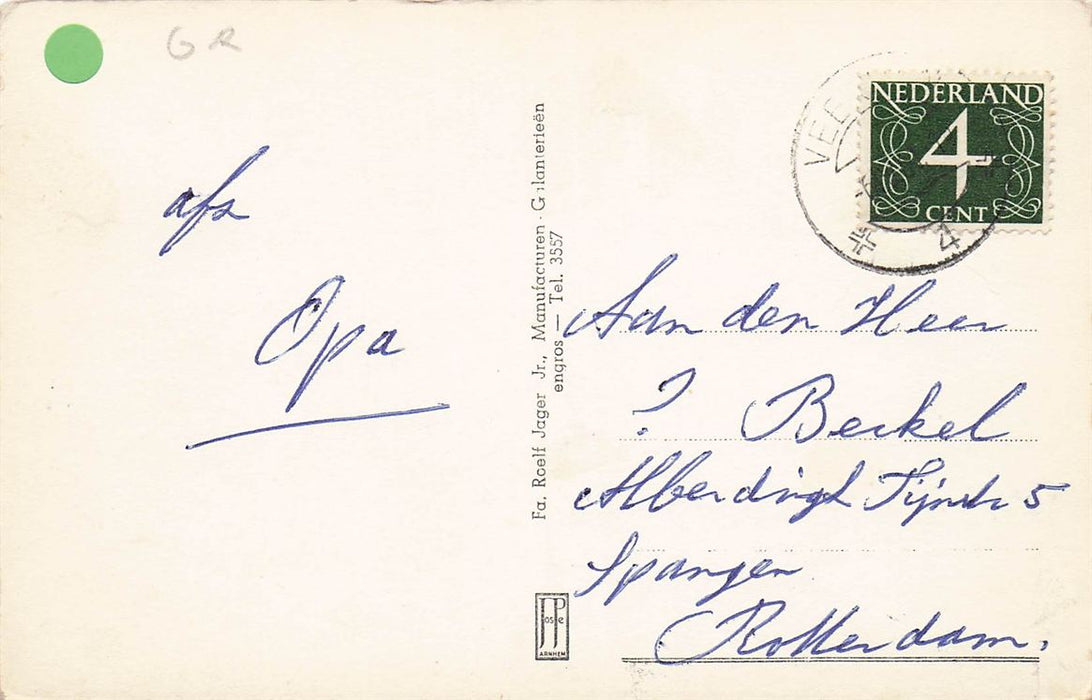 GR
afz
Opa
Fa. Roelf Jager Jr., Manufacturen - Galanterieën
engros — Tel. 3557
JosPe
ARNHEM
NEDERLAND
4
CENT
4
Aan den Heer
? Berkel
Alberdingk Tijnstr 5
Spangen
Rotterdam.